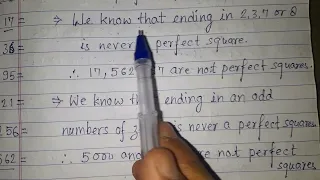 17 = → We know that ending in 2,3,7 or 8
36 is never a perfect square.
95 = ∴ 17, 562, 37 are not perfect squares.
21 = → We know that ending in an odd
256 = numbers of is never a perfect squares
562 = ∴ 5000 and are not perfect
squares